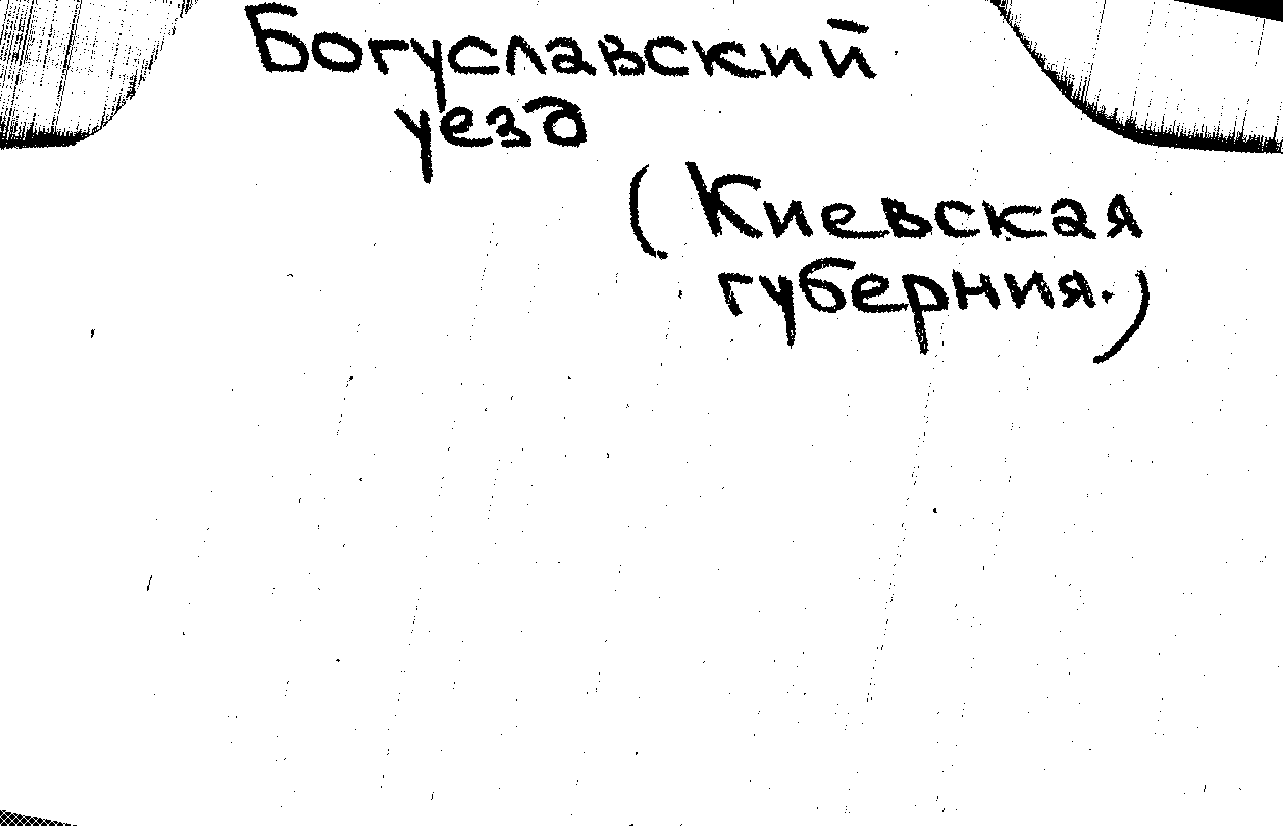 Богуславский
уезд
(Киевская
губерния.)